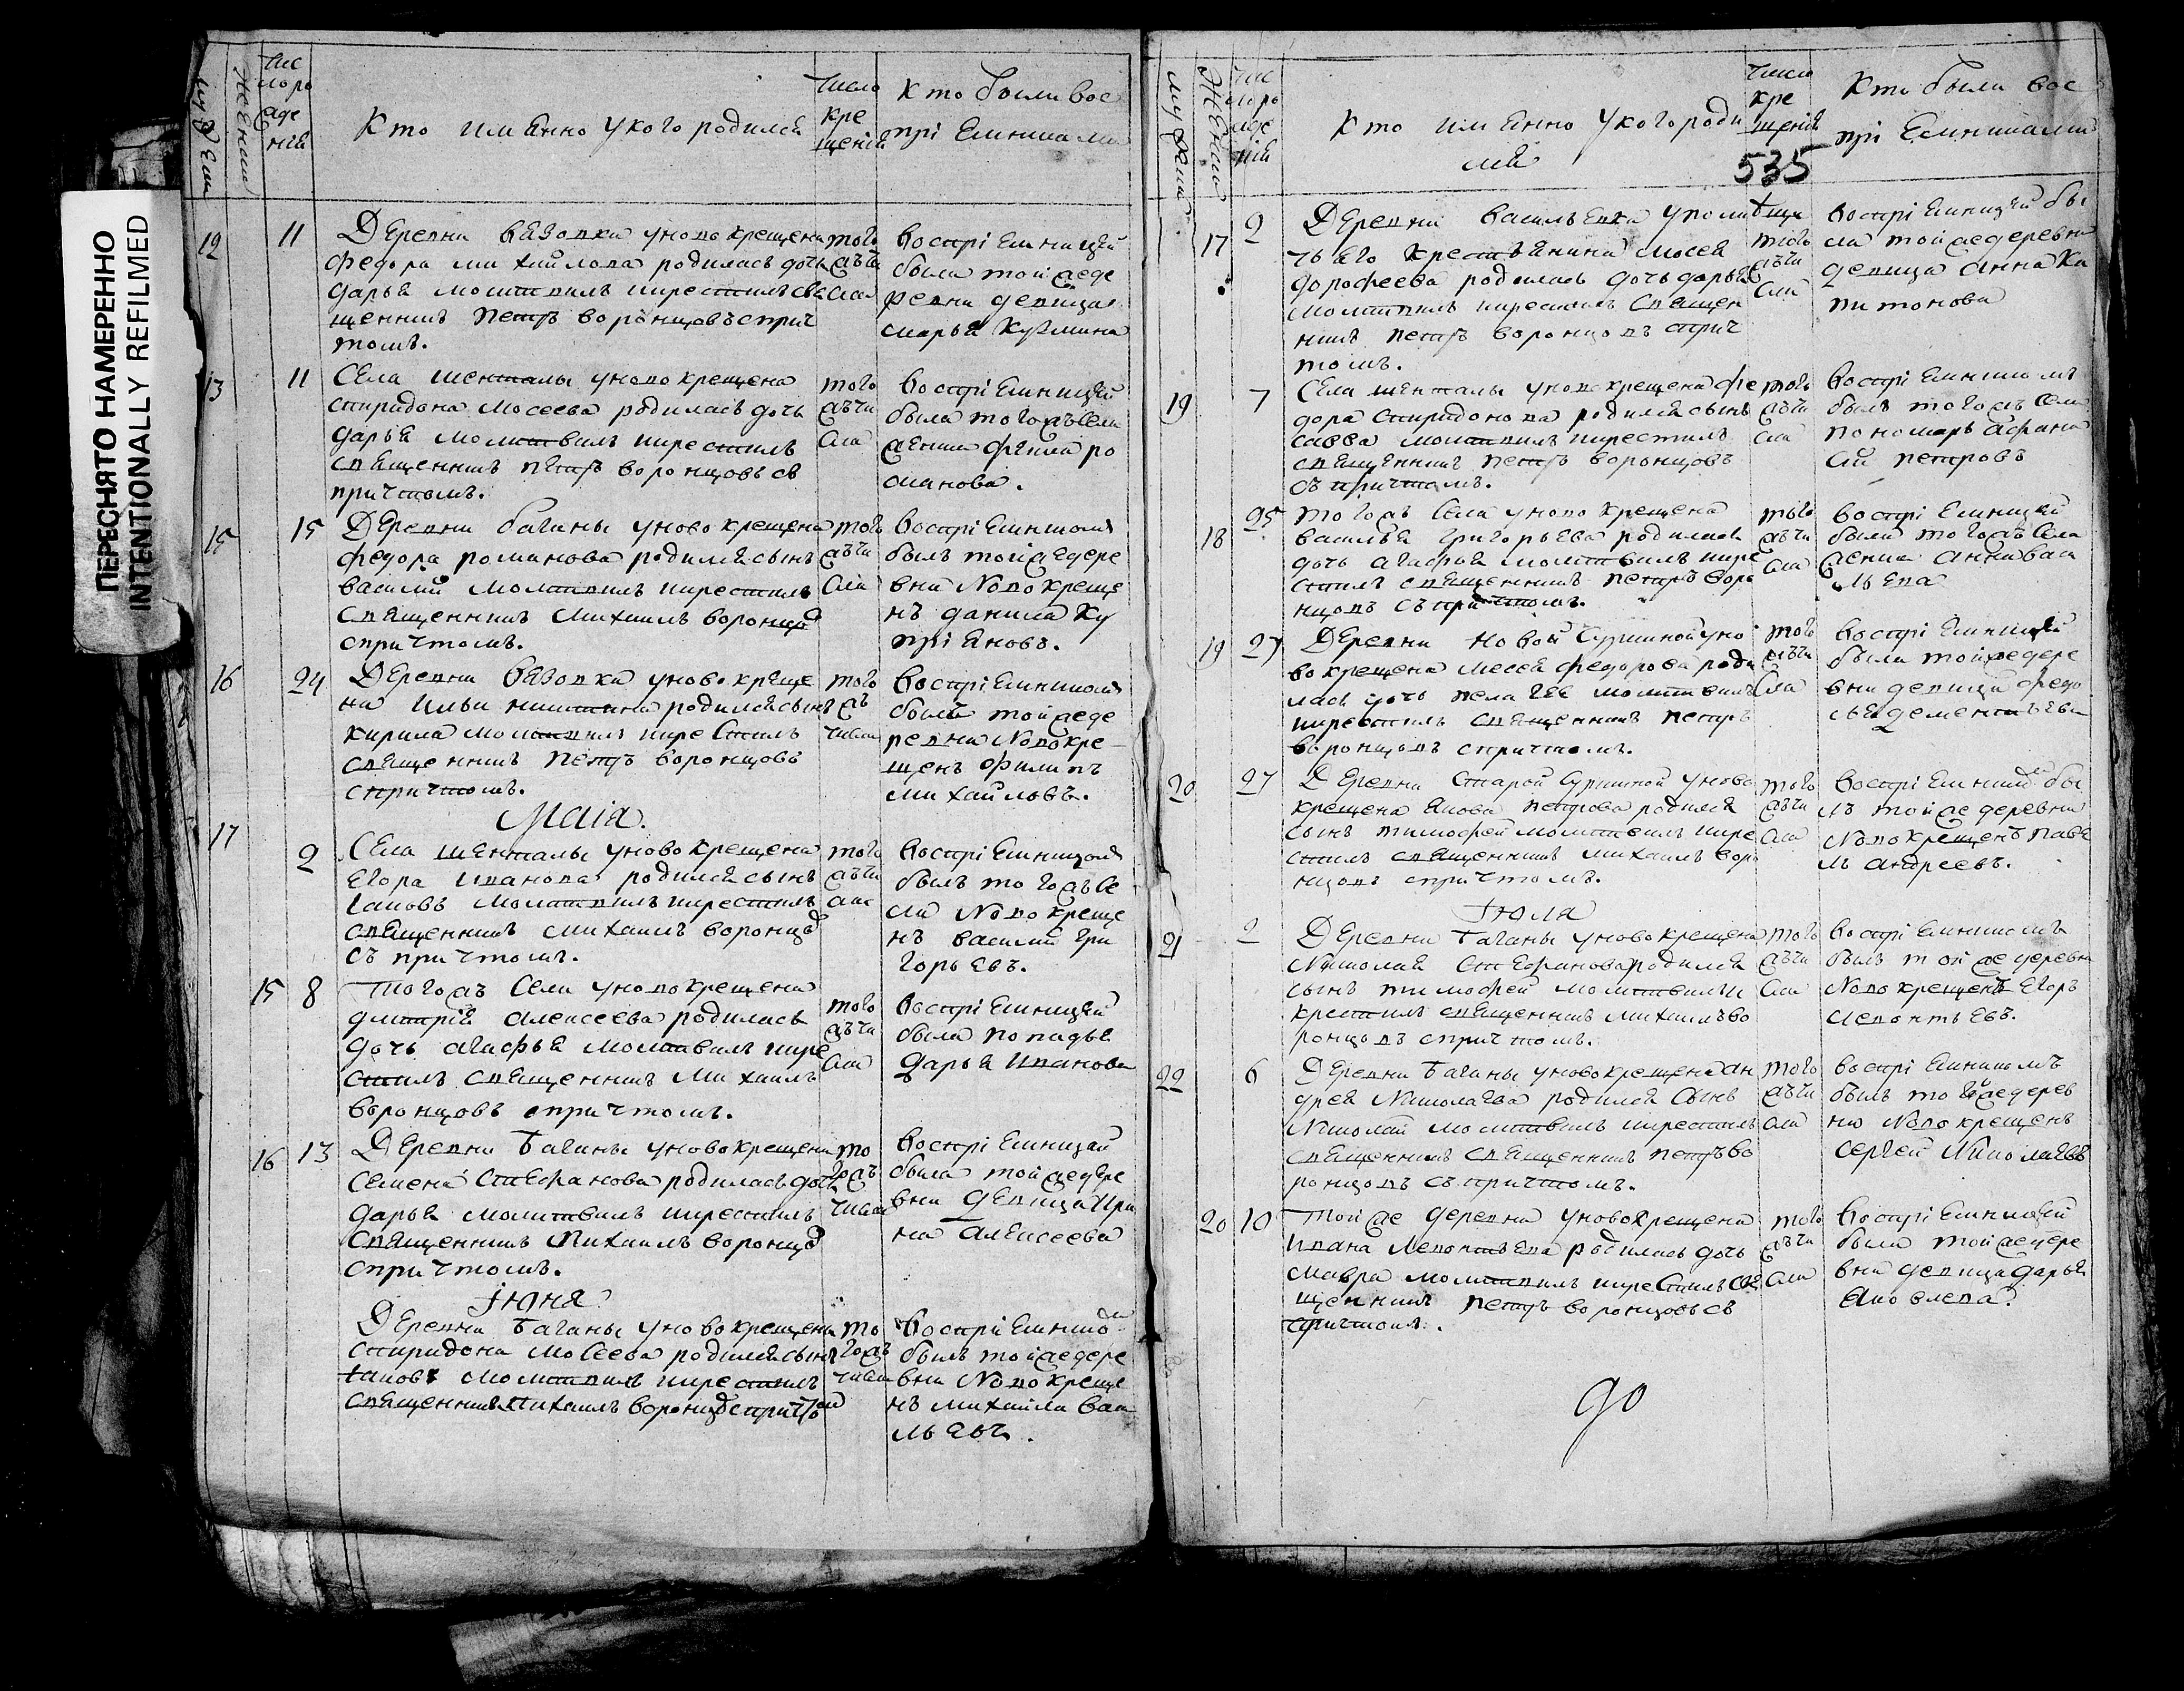 ПЕРЕСНЯТО НАМЕРЕННО
INTENTIONALLY REFILMED
Кто имянно укого родился
число
кре
щенія
Кто были вос
пріемниками
12
11
Деревни Вязовки уновокрещена
Федора михайлова родилась дочь
дарья молитвилъ икрестилъ свя
щенникъ петръ воронцовъ сприч
томъ.
того
жъчи
сла
воспріемницей
была тойжеде
ревни девица
марья Кузмина
13
11
Села шенталы уновокрещена
спиридона Мосеева родилась дочь
дарья молитвилъ икрестилъ
священникъ петръ воронцовъ съ
причтомъ.
того
жъчи
сла
воспріемницей
была тогожъсела
романова.
15
15
Деревни баганы уновокрещена
федора романова родился сынъ
василий молитвилъ икрестилъ
священникъ михаилъ воронцов
спричтомъ.
того
жъчи
сла
воспріемникомъ
былъ тойжедере
вни Новокреще
нъ данила Ку
пріяновъ.
16
24
Деревни вязовки уновокреще
на ильи никитина родился сынъ
кирила молитвилъ икрестилъ
священникъ петръ воронцовъ
спричтомъ.
того
жъ
числа
воспріемникомъ
былъ тойжеде
ревни Новокре
щенъ филипъ
михайловъ.
Маіа.
17
2
Села шенталы уновокрещена
Егора иванова родился сынъ
іаковъ молитвилъ икрестилъ
священникъ михаилъ воронцов
съ причтомъ.
того
жъчи
сла
воспріемникомъ
былъ тогожъсе
ла Новокреще
нъ василий гри
горьевъ.
15
8
тогожъ села уновокрещена
дмитрія алексеева родилась
дочь агафья молитвилъ икре
стилъ священникъ михаилъ
воронцовъ спричтомъ.
того
жъчи
сла
воспріемницей
была попадья
дарья иванова
16
13
Деревни баганы уновокрещена
семена стефанова родилась дочь
дарья молитвилъ икрестилъ
священникъ михаилъ воронцов
спричтомъ.
то
гожъ
числа
воспріемницей
была тойжедере
вни девица ири
на алексеева
іюня
Деревни баганы уновокрещена
спиридона мосеева родился сынъ
іаковъ молитвилъ икрестилъ
священникъ михаилъ воронцов спричтом
то
гожъ
числа
воспріемником
былъ тойжедере
вни Новокреще
нъ михаила васи
льевъ.
Кто имянно укогороди
лся
число
кре
щенія
535
Кто были вос
пріемниками
17
2
Деревни васильевки упоми
чьяго крестьянина мосея
дорофеева родилась дочь дарья
молитвилъ икрестилъ священ
никъ петръ воронцовъ сприч
томъ.
того
жъчи
сла
воспріемницей бы
ла тойжедеревни
девица анна ка
питонова
19
7
Села шенталы уновокрещена фе
дора спиридонова родился сынъ
савва молитвилъ икрестилъ
священникъ петръ воронцовъ
съпричтомъ.
того
жъчи
сла
воспріемникомъ
былъ тогожъ села
пономарь афана
сий петровъ
18
25
тогожъ села уновокрещена
василья григорьева родилась
дочь агафья молитвилъ икре
стилъ священникъ петръ воро
нцовъ съпричтомъ.
того
жъчи
сла
воспріемницей
была тогожъ села
женка анна васи
льева
19
27
Деревни новой суркиной уно
вокрещена мосея федорова роди
лась дочь пелагея молитвилъ
икрестилъ священникъ петръ
воронцовъ спричтомъ.
того
жъчи
сла
воспріемницей
была тойжедере
вни девица федо
сья дементьева
20
27
Деревни старой суркиной уново
крещена якова петрова родился
сынъ тимофей молитвилъ икре
стилъ священникъ михаилъ воро
нцовъ спричтомъ.
того
жъчи
сла
воспріемником бы
лъ тойже деревни
Новокрещенъ паве
лъ андреевъ.
іюля
21
2
Деревни баганы уновокрещена
Николая стефанова родился
сынъ тимофей молитвилъ и
крестилъ священникъ михаилъ во
ронцовъ спричтомъ.
того
жъчи
сла
воспріемникомъ
былъ тойже деревни
Новокрещенъ Егоръ
леонтьевъ.
22
6
Деревни баганы уновокрещена ан
дрея Николаева родился сынъ
Николай молитвилъ икрестилъ
священникъ священникъ петръ во
ронцовъ съпричтомъ.
того
жъчи
сла
воспріемникомъ
былъ тойжедерев
ни Новокрещенъ
сергей Николаевъ
20
10
тойже деревни уновокрещена
ивана леонтьева родилась дочь
мавра молитвилъ икрестилъ свя
щенникъ петръ воронцовъ съ
причтомъ.
того
жъчи
сла
воспріемницей
была тойжедере
вни девица дарья
яковлева.